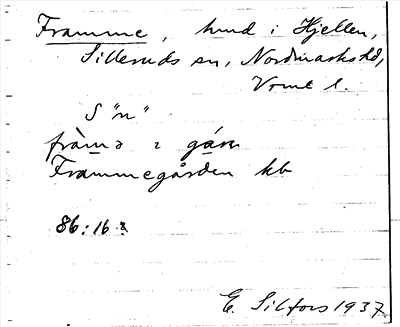 Framme, hmd i Hjellen,
Silleruds sn, Nordmarks hd,
Vrml l.
S "n"
fràmə 2 gán
Frammegården kb
86:16
E. Silfors 1937